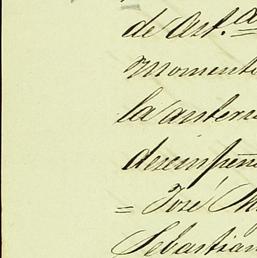 de Art.ª
momento
la anteri
desempeñ
= José M
Sebastian